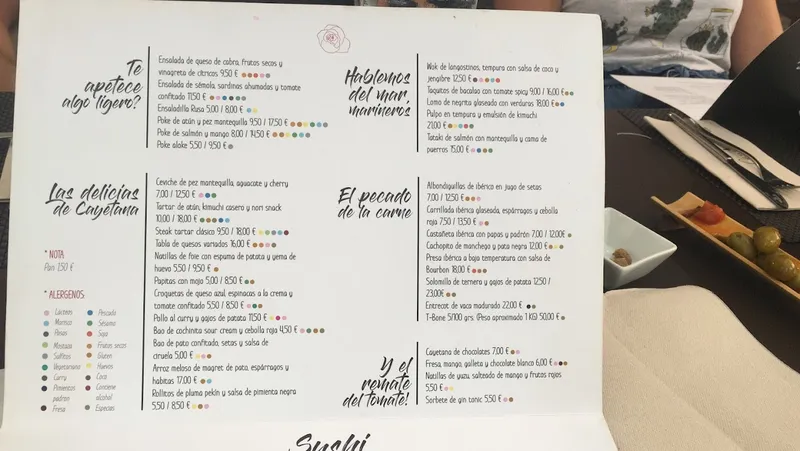 Te
apetece
algo ligero?
Ensalada de queso de cabra, frutos secos y
vinagreta de cítricos 9,50 €
Ensalada de sémola, sardinas ahumadas y tomate
confitado 11,50 €
Ensaladilla Rusa 5,00 / 8,00 €
Poke de atún y pez mantequilla 9,50 / 17,50 €
Poke de salmón y mango 8,00 / 14,50 €
Poke aloke 5,50 / 9,50 €
Las delicias
de Cayetana
Ceviche de pez mantequilla, aguacate y cherry
7,00 / 12,50 €
Tartar de atún, kimuchi casero y nori snack
10,00 / 18,00 €
Steak tartar clásico 9,50 / 18,00 €
Tabla de quesos variados 16,00 €
Natillas de foie con espuma de patata y yema de
huevo 5,50 / 9,50 €
Papitas con mojo 5,00 / 8,50 €
Croquetas de queso azul, espinacas a la crema y
tomate confitado 5,50 / 8,50 €
Pollo al curry y gajos de patata 11,50 €
Bao de cochinita sour cream y cebolla roja 4,50 €
Bao de pato confitado, setas y salsa de
ciruela 5,00 €
Arroz meloso de magret de pato, espárragos y
habitas 17,00 €
Rollitos de pluma pekín y salsa de pimienta negra
5,50 / 8,50 €
* NOTA
Pan 1,50 €
* ALERGENOS:
Lacteos
Marisco
Mostaza
Sulfitos
Vegetariano
Curry
Pimientos
padron
Fresa
Pescado
Sésamo
Soja
Frutos secos
Gluten
Huevos
Coco
Contiene
alcohol
Especias
Hablemos
del mar,
marineros
Wok de langostinos, tempura con salsa de coco y
jengibre 12,50 €
Taquitos de bacalao con tomate spicy 9,00 / 16,00 €
Lomo de negrito glaseado con verduras 18,00 €
Pulpo en tempura y emulsión de kimuchi
21,00 €
Tataki de salmón con mantequilla y cama de
puerros 15,00 €
El pecado
de la carne
Albondiguillas de ibérico en jugo de setas
7,00 / 12,50 €
Carrillada ibérica glaseada, espárragos y cebolla
roja 7,50 / 13,50 €
Castañeta ibérica con papas y padrón 7,00 / 12,00€
Cachopito de manchego y pata negra 12,00 €
Presa ibérica a baja temperatura con salsa de
Bourbon 18,00 €
Solomillo de ternera y gajos de patata 12,50 /
23,00€
Entrecot de vaca madurado 22,00 €
T-Bone 5/100 grs. (Peso aproximado 1 KG) 50,00 €
Y el
remate
del tomate!
Cayetana de chocolates 7,00 €
Fresa, mango, galleta y chocolate blanco 6,00 €
Natillas de yuzu, salteado de mango y frutos rojos
5,50 €
Sorbete de gin tonic 5,50 €
Sushi